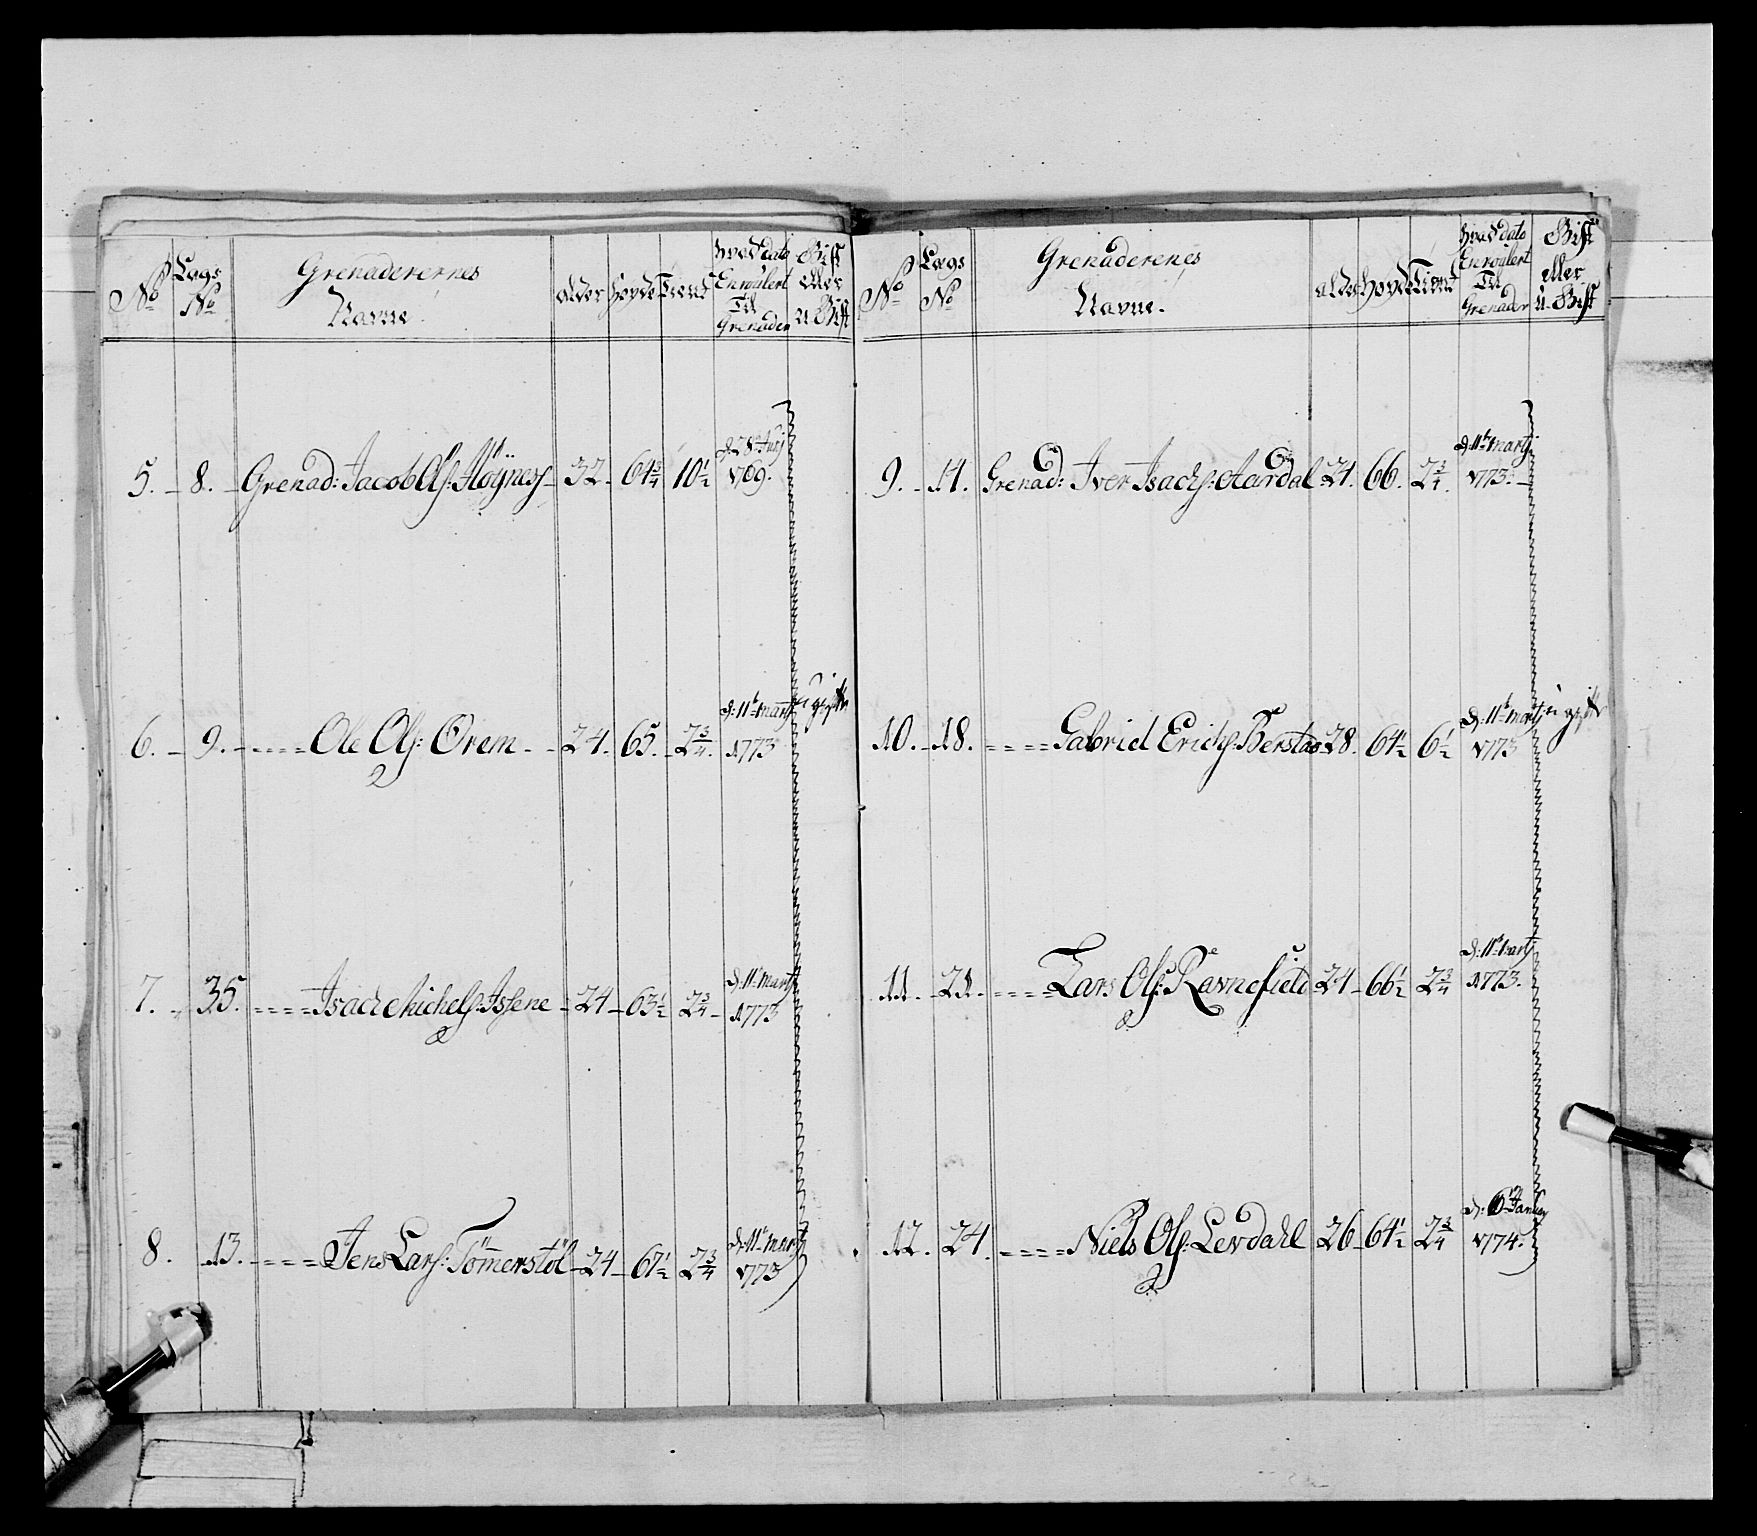 No
Lægs No
Grenaderernes
Navne.
alder
Høyde
Tient
hvad dato
Enroulert
Til
Grenader
Gift
eller
u-Gift
5. 8. Grenad: Jacob Ols: Höynes 32. 64¾ 10½ d: 28 Junj
1769.
6. 9. Ole Ols: Orem 24. 65. 2¾. d: 11t marty u gift
1773
7. 35. Isach Michels: Issene 24 63½ 2¾ d: 11t marty
1773
8. 13. Jens Lars: Tömerstöl 24 67½ 2¾ d: 11t marty
1773
No
Lægs
No
Grenaderenes
Navne.
alder
Høyde
Tient
hvad dato
Enroulert
Til
Grenader
Gift
eller
u-Gift
9. 14. Grenad: Iver Isachs: Aardal 24. 66. 2¾. d: 11t marty
1773.
10. 18. Gabriel Erichs: Berstad 28. 64½ 6½ d: 11t marty u gift
1773
11. 21. Lars Ols: Ravnefield 24 66½ 2¾ d: 11t marty
1773.
12. 24. Niels Ols: Levdahl 26 64½ 2¾
1774.